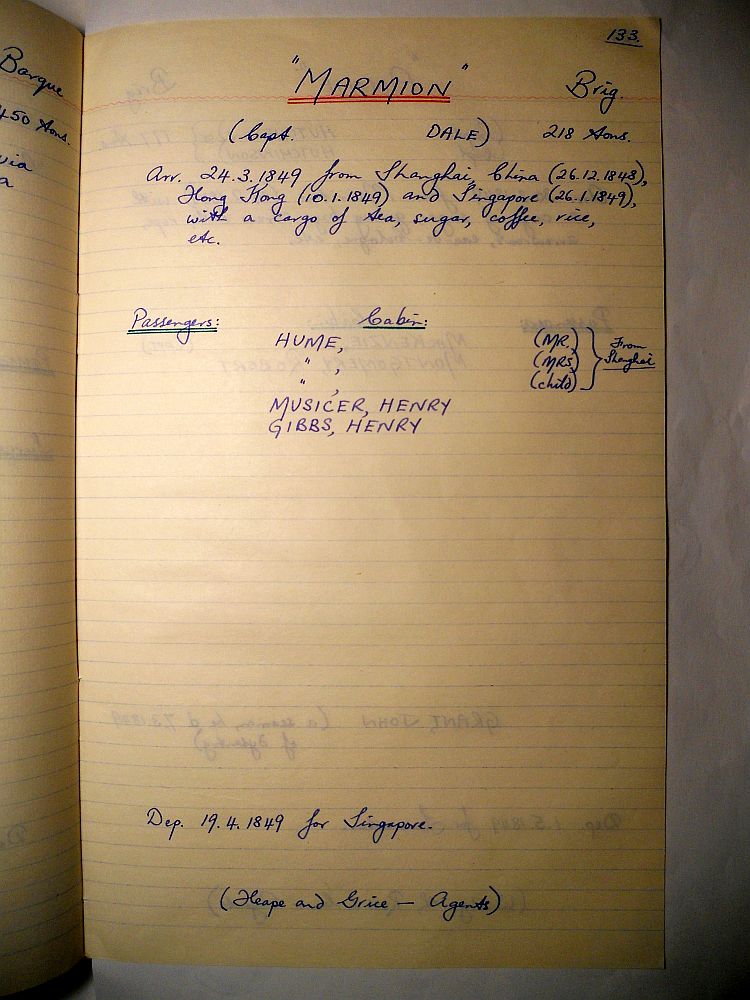 133.
"MARMION" Brig.
(Capt. DALE) 218 tons.
Arr. 24.3.1849 from Shanghai, China (26.12.1848),
Hong Kong (10.1.1849) and Singapore (26.1.1849),
with a cargo of tea, sugar, coffee, rice,
etc.
Passengers: Cabin:
HUME, (MR.)
" , (MRS)
" , (child)
From
Shanghai
MUSICER, HENRY
GIBBS, HENRY
Dep. 19.4.1849 for Singapore.
(Heape and Grice — Agents)
Barque
450 tons.
via
a